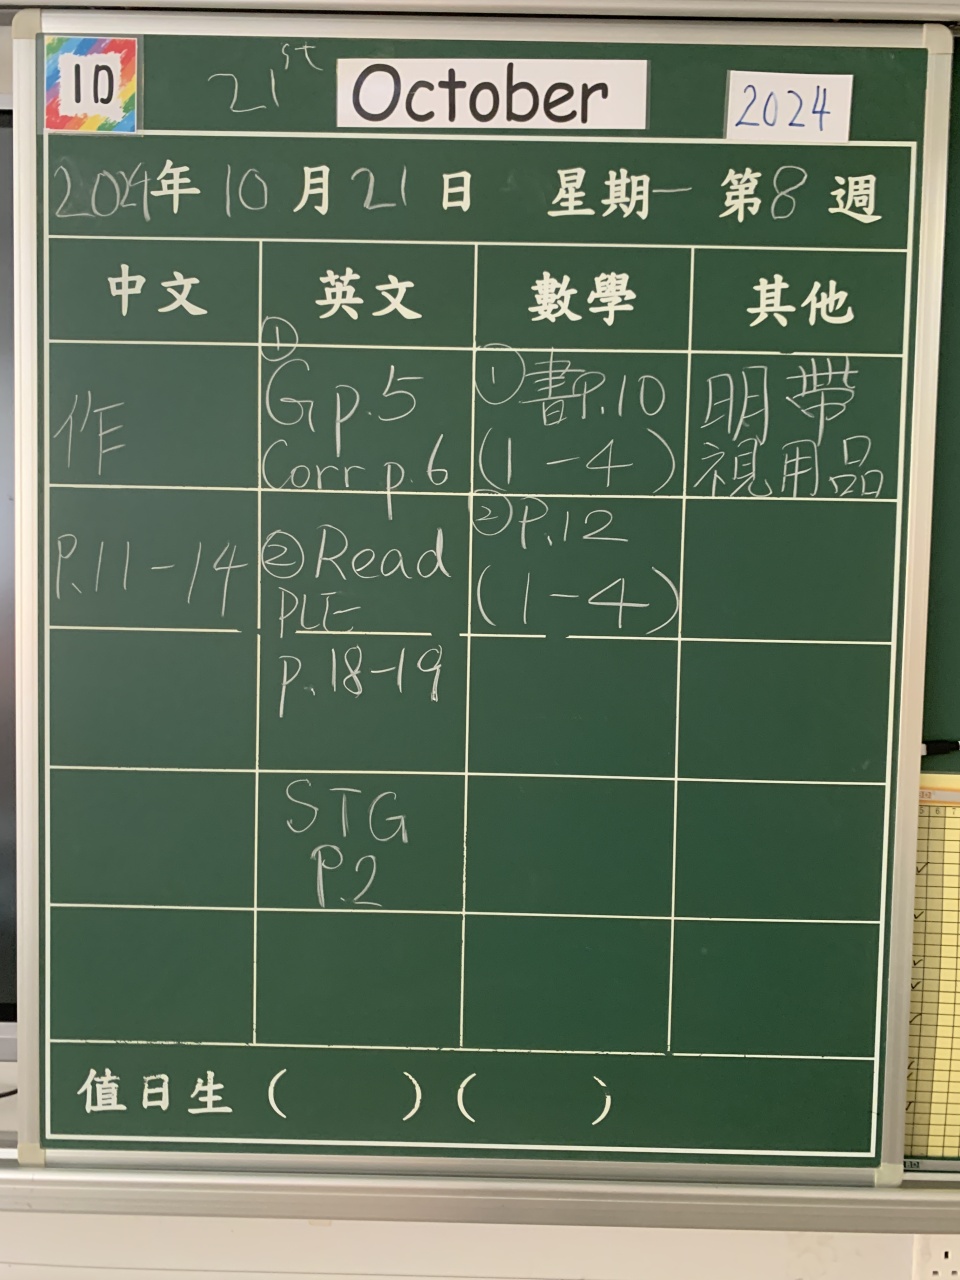 1D
21st October 2024
2024年10月21日 星期一 第8週
中文 英文 數學 其他
作
P.11-14
① G p.5
Corr p.6
② Read
PLE
p.18-19
STG
P.2
① 書P.10
(1-4)
② P.12
(1-4)
明帶
視用品
值日生 ( ) ( )